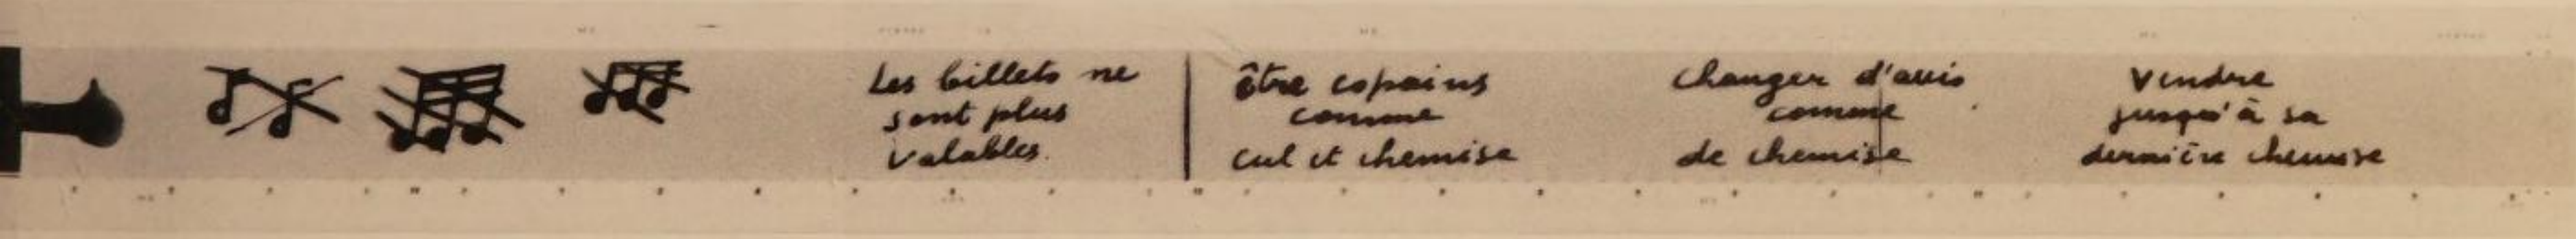 Les billets ne
sont plus
valables.
être copains
comme
cul et chemise
Changer d'avis
comme
de chemise
Vendre
jusqu'à sa
dernière chemise